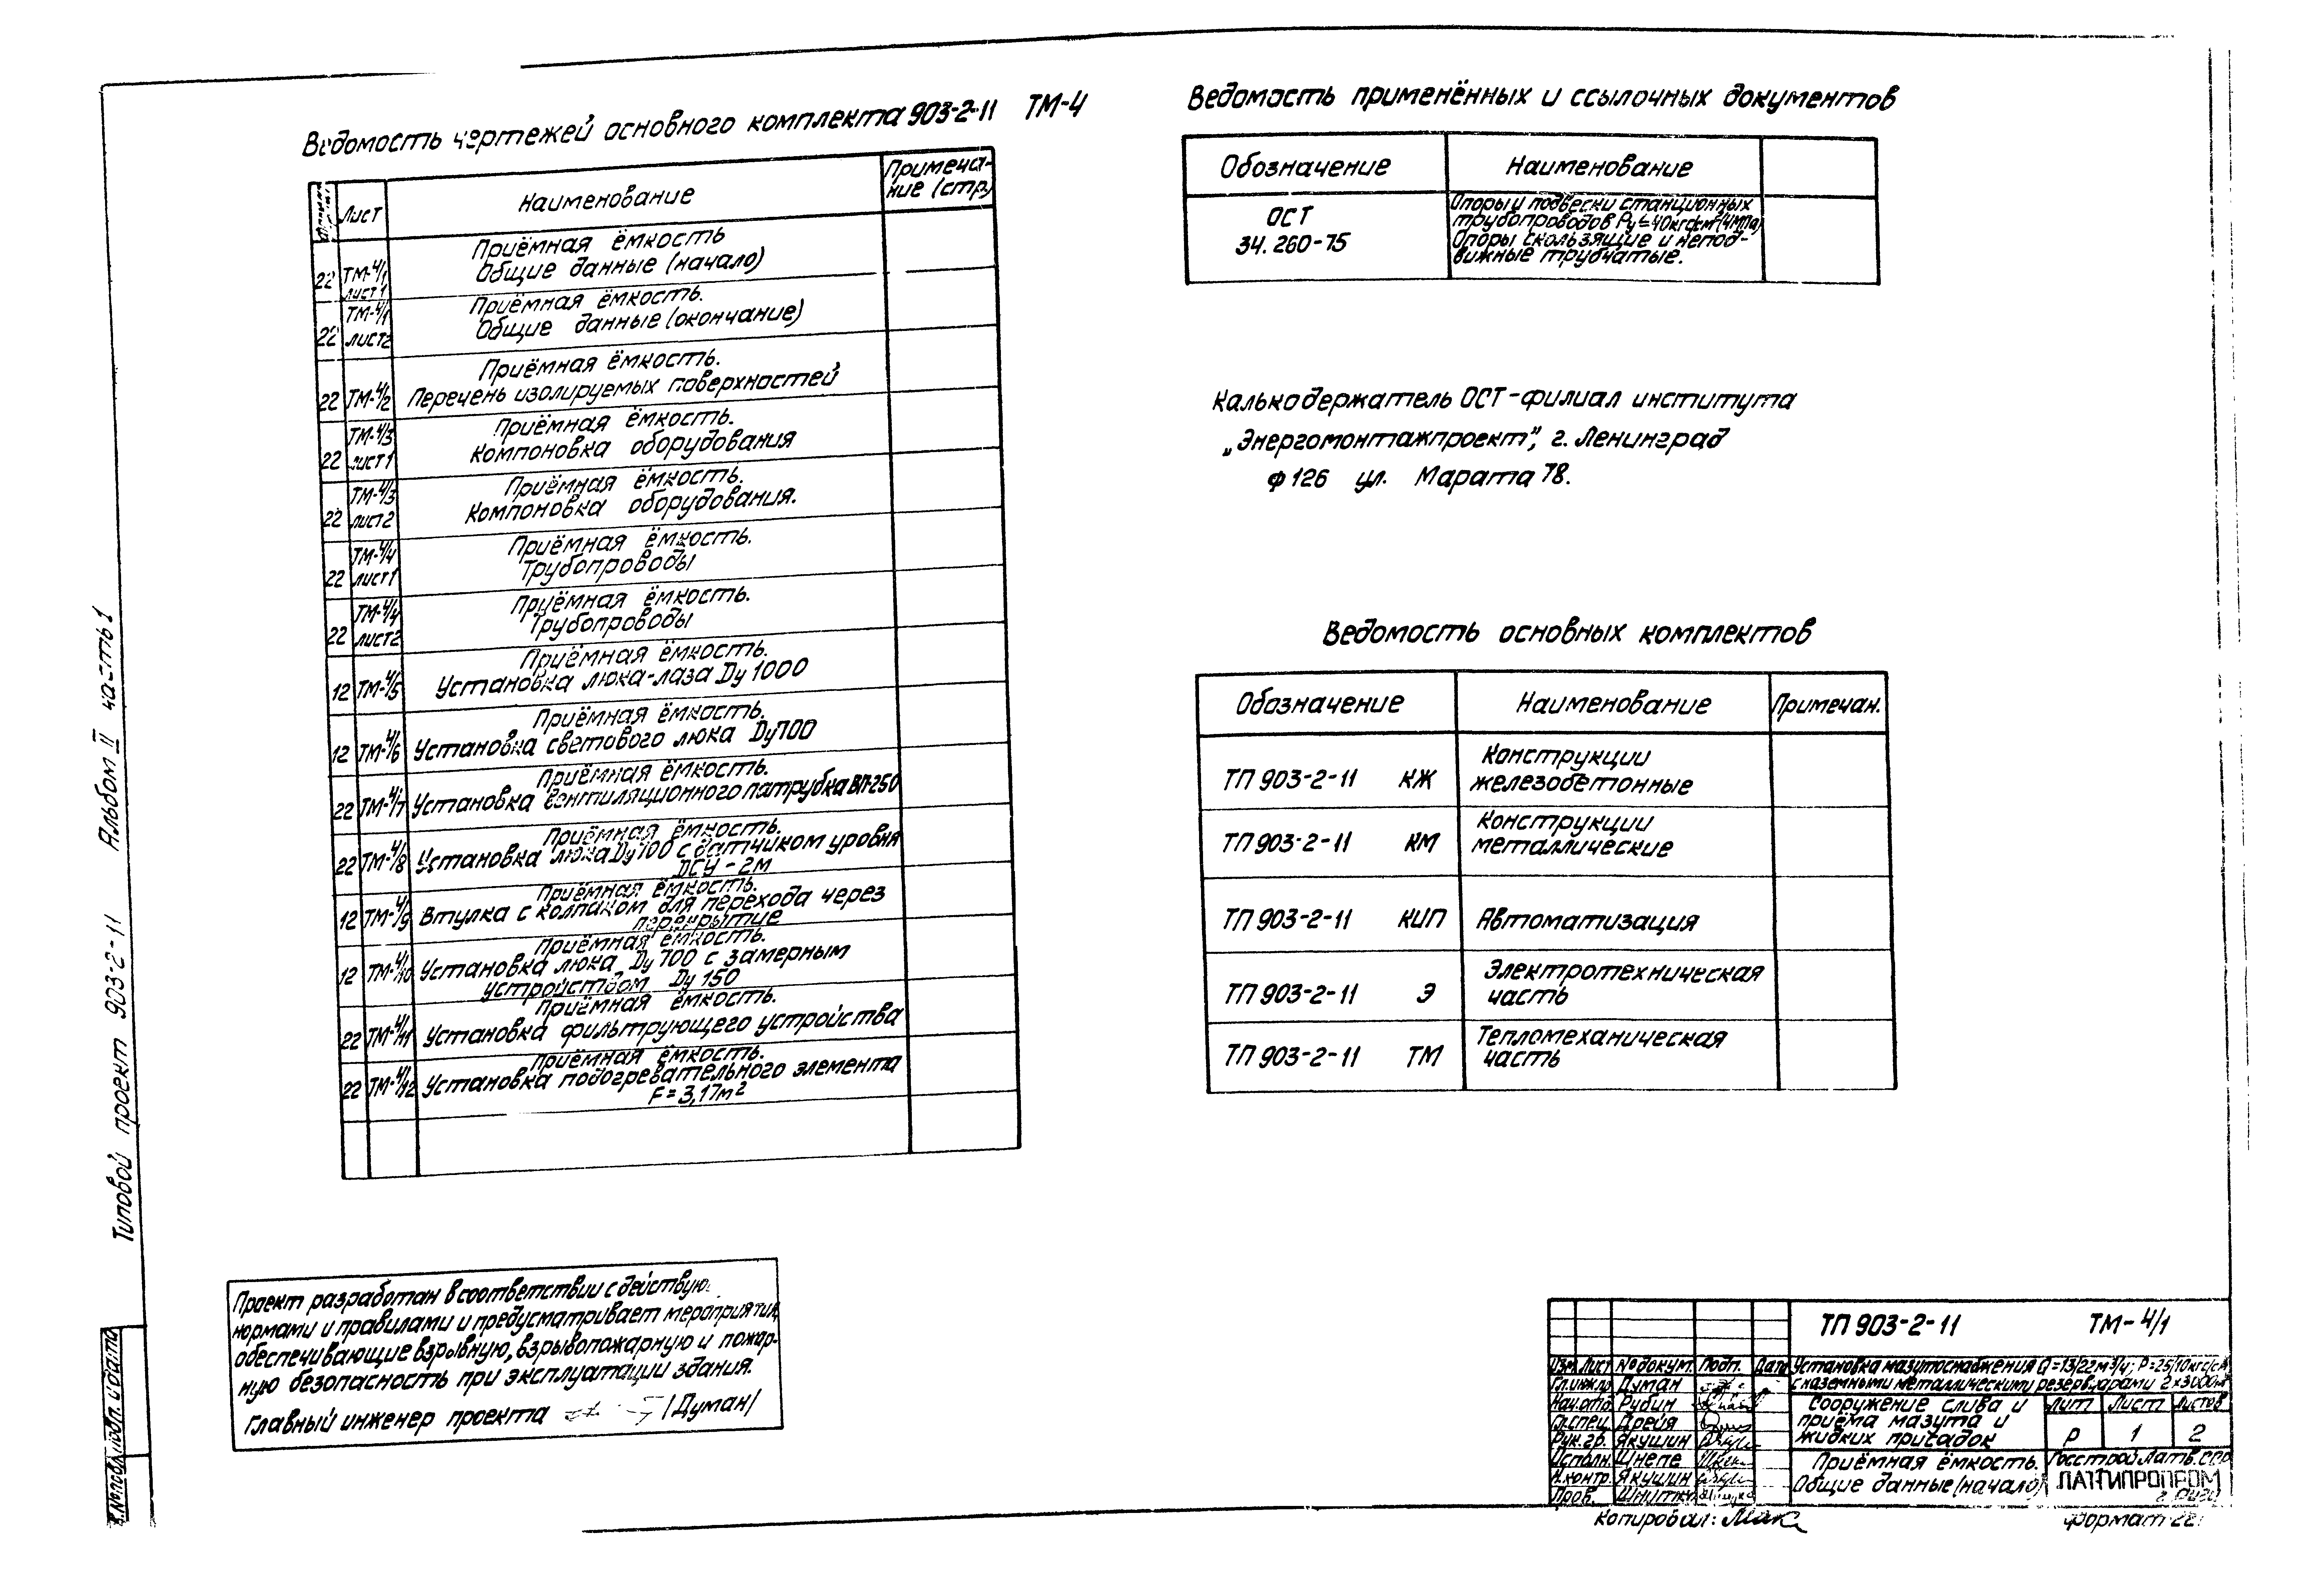 Ведомость чертежей основного комплекта 903-2-11 ТМ-4
Лист Наименование Примеча-
ние (стр)
Приёмная ёмкость
22 ТМ-4/1 Общие данные (начало)
лист 1
Приёмная ёмкость.
ТМ-4/1 Общие данные (окончание)
22 лист2
Приёмная ёмкость.
22 ТМ-4/2 Перечень изолируемых поверхностей
Приёмная ёмкость.
ТМ-4/3 Компоновка оборудования
22 лист1
Приёмная ёмкость.
ТМ-4/3 Компоновка оборудования.
22 лист2
Приёмная ёмкость.
ТМ-4/4 Трубопроводы
22 лист1
Приёмная ёмкость.
ТМ-4/4 Трубопроводы
22 лист2
Приёмная ёмкость.
12 ТМ-4/5 Установка люка-лаза Dу 1000
Приёмная ёмкость.
12 ТМ-4/6 Установка светового люка Dу700
Приёмная ёмкость.
22 ТМ-4/7 Установка вентиляционного патрубка ВП-250
Приёмная ёмкость.
22 ТМ-4/8 Установка люка Dу 700 с датчиком уровня
ДСУ-2м
Приёмная ёмкость.
12 ТМ-4/9 Втулка с колпаком для перехода через
перекрытие
Приёмная ёмкость.
12 ТМ-4/10 Установка люка Dу 700 с замерным
устройством Dу 150
Приёмная ёмкость.
22 ТМ-4/11 Установка фильтрующего устройства
Приёмная ёмкость.
22 ТМ-4/12 Установка подогревательного элемента
F = 3,17м²
Ведомость применённых и ссылочных документов
Обозначение Наименование
ОСТ
34.260-75
Опоры и подвески станционных
трубопроводов Ру≤40кгс/см²(4МПа)
Опоры скользящие и непод-
вижные трубчатые.
Калькодержатель ОСТ-филиал института
„Энергомонтажпроект", г. Ленинград
Ф 126 ул. Марата 78.
Ведомость основных комплектов
Обозначение Наименование Примечан.
ТП 903-2-11 КЖ Конструкции
железобетонные
ТП 903-2-11 КМ Конструкции
металлические
ТП 903-2-11 КИП Автоматизация
ТП 903-2-11 Э Электротехническая
часть
ТП 903-2-11 ТМ Тепломеханическая
часть
Проект разработан в соответствии с действую
нормами и правилами и предусматривает мероприятия,
обеспечивающие взрывную, взрывопожарную и пожар-
ную безопасность при эксплуатации здания.
Главный инженер проекта /Думан/
Типовой проект 903-2-11 Альбом II часть 1
Подп. и дата
ТП 903-2-11 ТМ-4/1
Изм. Лист № докум. Подп. Дата
Установка мазутоснабжения Q=13/22м³/ч; Р=25/10кгс/см²
с наземными металлическими резервуарами 2×3000м³
Гл.инж.пр Думан
Нач.отд Рубин
Гл.спец. Дрейя
Рук.гр. Якушин
Исполн. Шнепе
Н.контр. Якушин
Пров.
Сооружение слива и
приёма мазута и
жидких присадок
Лит Лист Листов
Р 1 2
Приёмная ёмкость.
Общие данные (начало)
Госстрой Латв.ССР
ЛАТГИПРОПРОМ
г. Рига
Копировал:
Формат 22